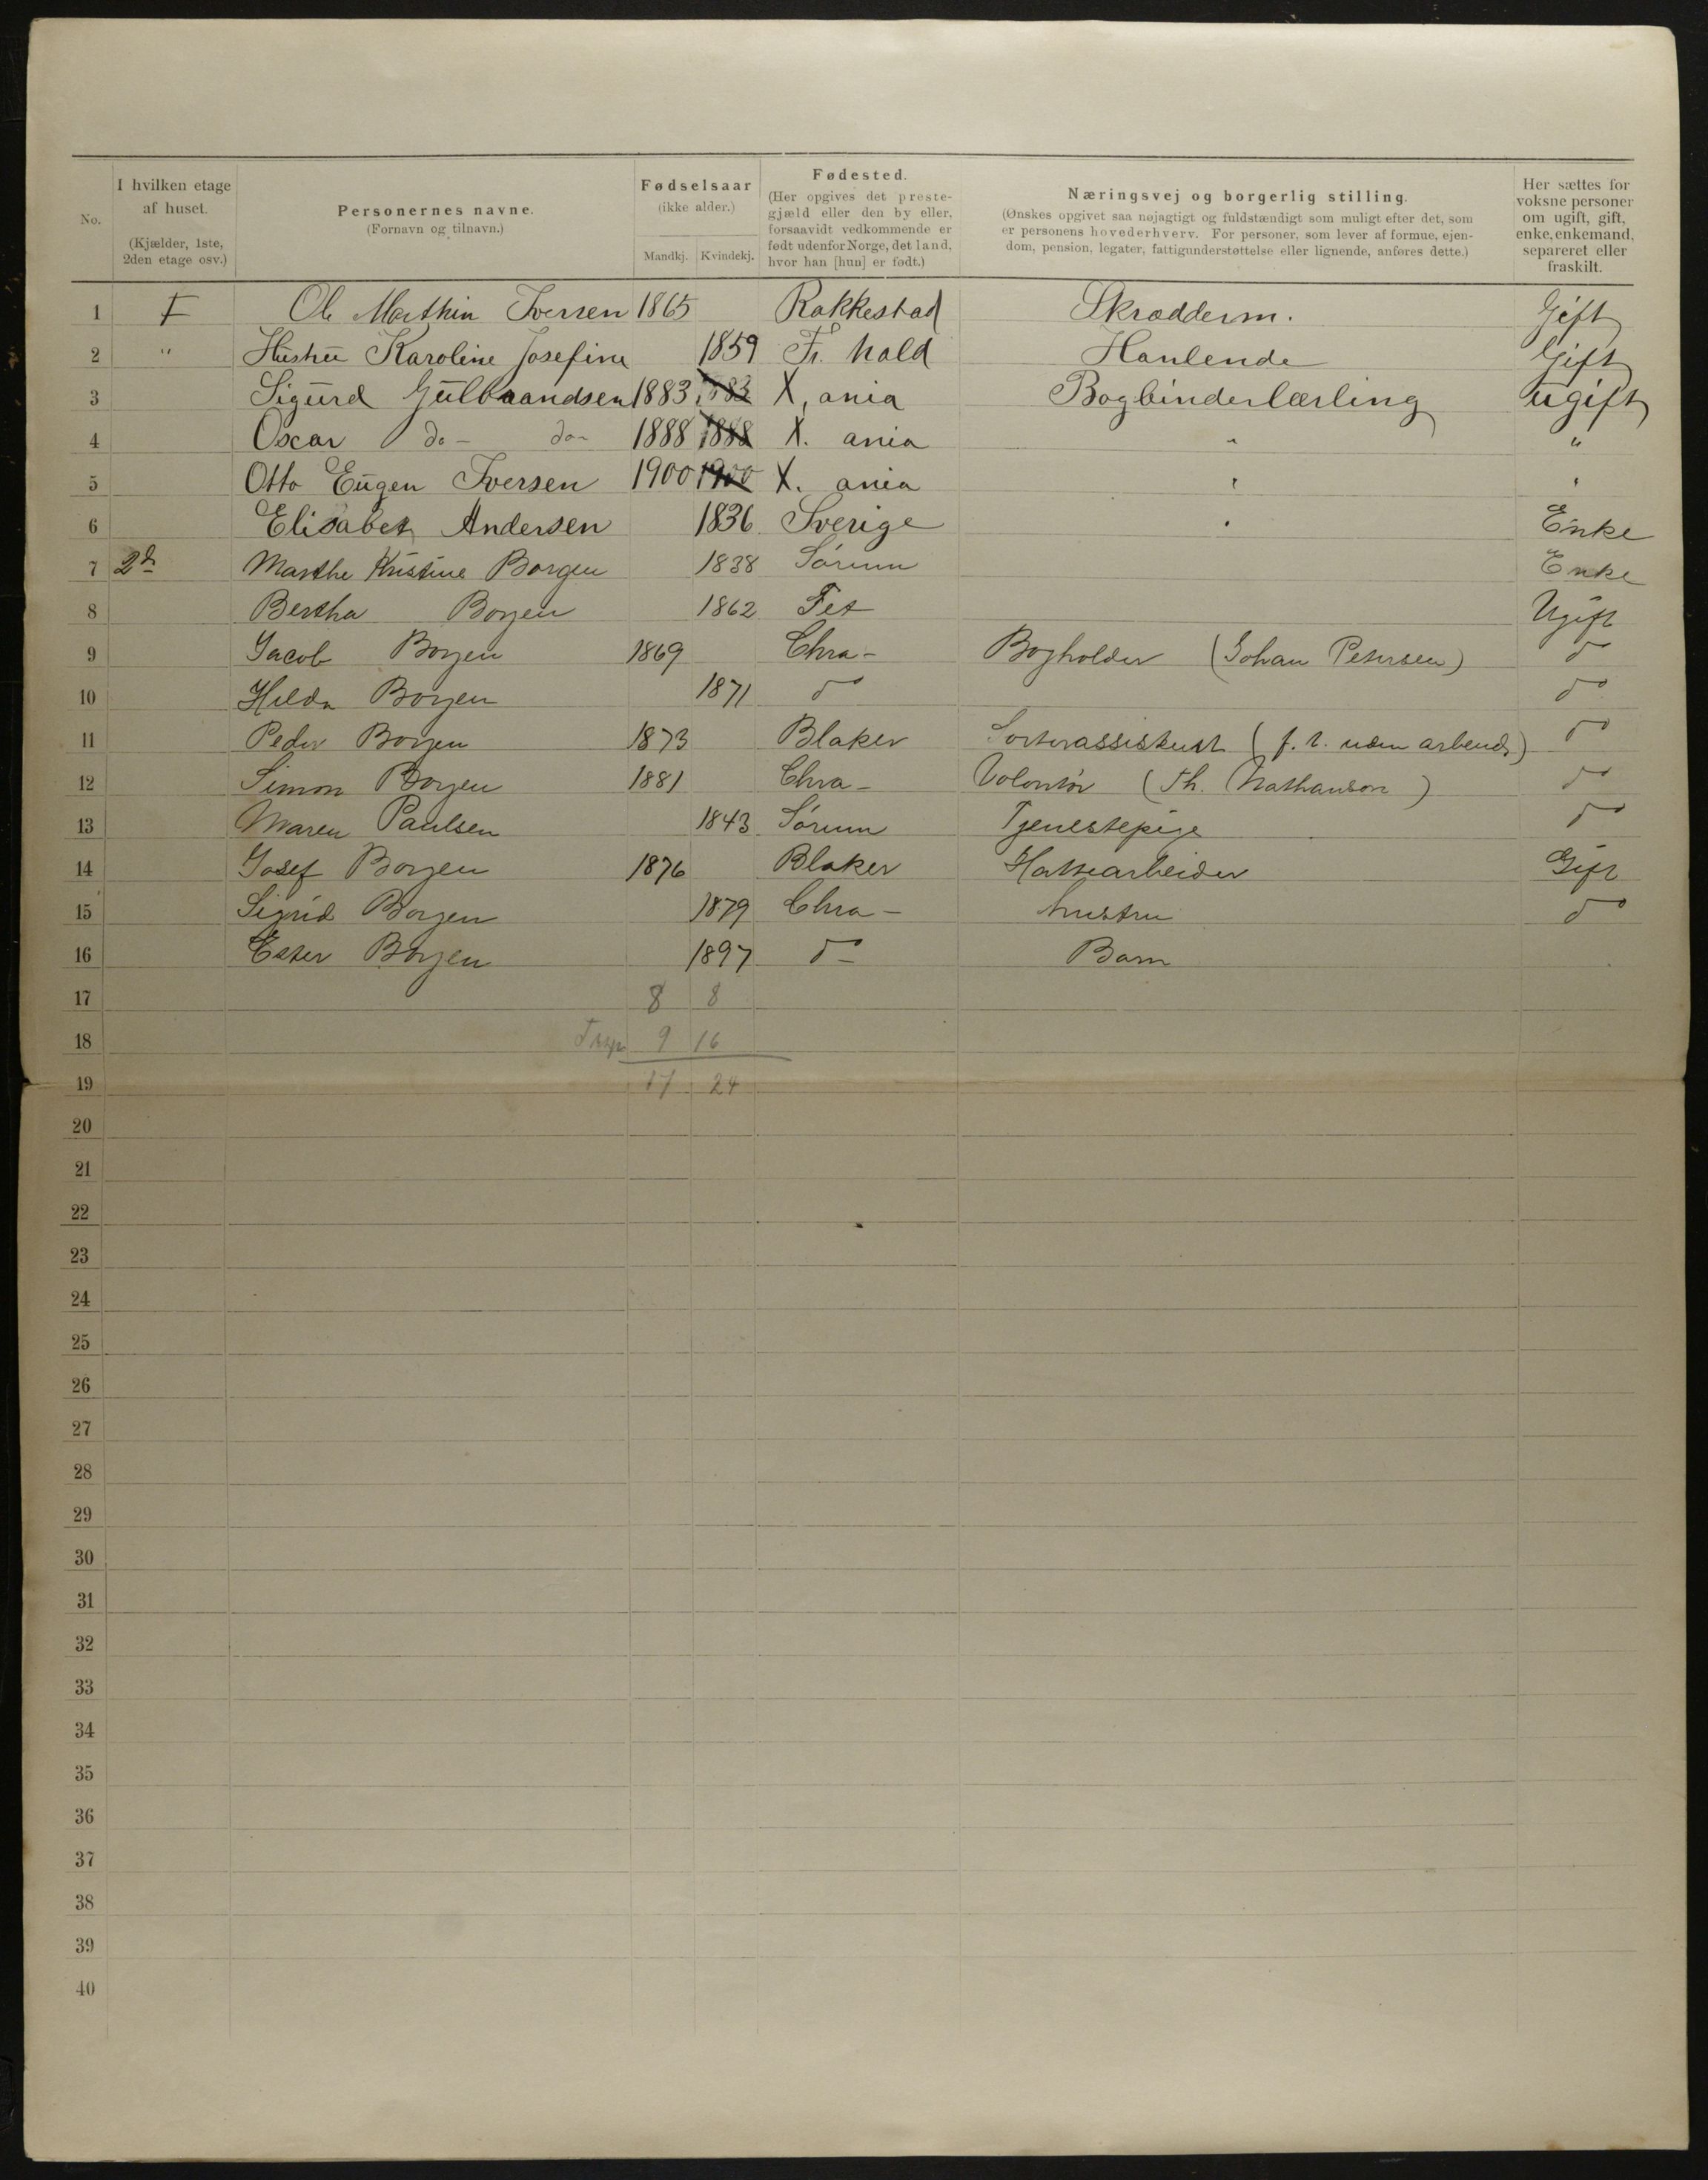 No.
I hvilken etage af huset.
(Kjælder, 1ste, 2den etage osv.)
Personernes navne.
(Fornavn og tilnavn.)
Fødselsaar
(ikke alder.)
Mandkj. Kvindekj.
Fødested.
(Her opgives det prestegjæld eller den by eller, forsaavidt vedkommende er født udenfor Norge, det land, hvor han [hun] er født.)
Næringsvej og borgerlig stilling.
(Ønskes opgivet saa nøjagtigt og fuldstændigt som muligt efter det, som er personens hovederhverv. For personer, som lever af formue, ejendom, pension, legater, fattigunderstøttelse eller lignende, anføres dette.)
Her sættes for voksne personer om ugift, gift, enke, enkemand, separeret eller fraskilt.
1 I Ole Marthin Iversen 1865 Rakkestad Skrædderm. Gift
2 " Hustru Karoline Josefine 1859 Fr. hald Hanlende Gift
3 Sigurd Gulbrandsen 1883 1883 X,ania Bogbinderlærling ugift
4 Oscar do- do- 1888 1888 X. ania " "
5 Otto Eugen Iversen 1900 1900 X. ania " "
6 Elisabet Andersen 1836 Sverige " Enke
7 2d Marthe Kristine Borgen 1838 Sørum Enke
8 Bertha Borgen 1862 Fet Ugift
9 Jacob Borgen 1869 Chra- Bogholder (Johan Petersen) do
10 Hilda Borgen 1871 do do
11 Peder Borgen 1873 Blaker Sorterassistent (f.t. uden arbeide) do
12 Simon Borgen 1881 Chra- Volontør (Th. Nathanson) do
13 Maren Paulsen 1843 Sørum Tjenestepige do
14 Josef Borgen 1876 Blaker Hattearbeider Gift
15 Sigrid Borgen 1879 Chra- hustru do
16 Ester Borgen 1897 do- Barn
17 8 8
18 9 16
19 17 24
20
21
22
23
24
25
26
27
28
29
30
31
32
33
34
35
36
37
38
39
40